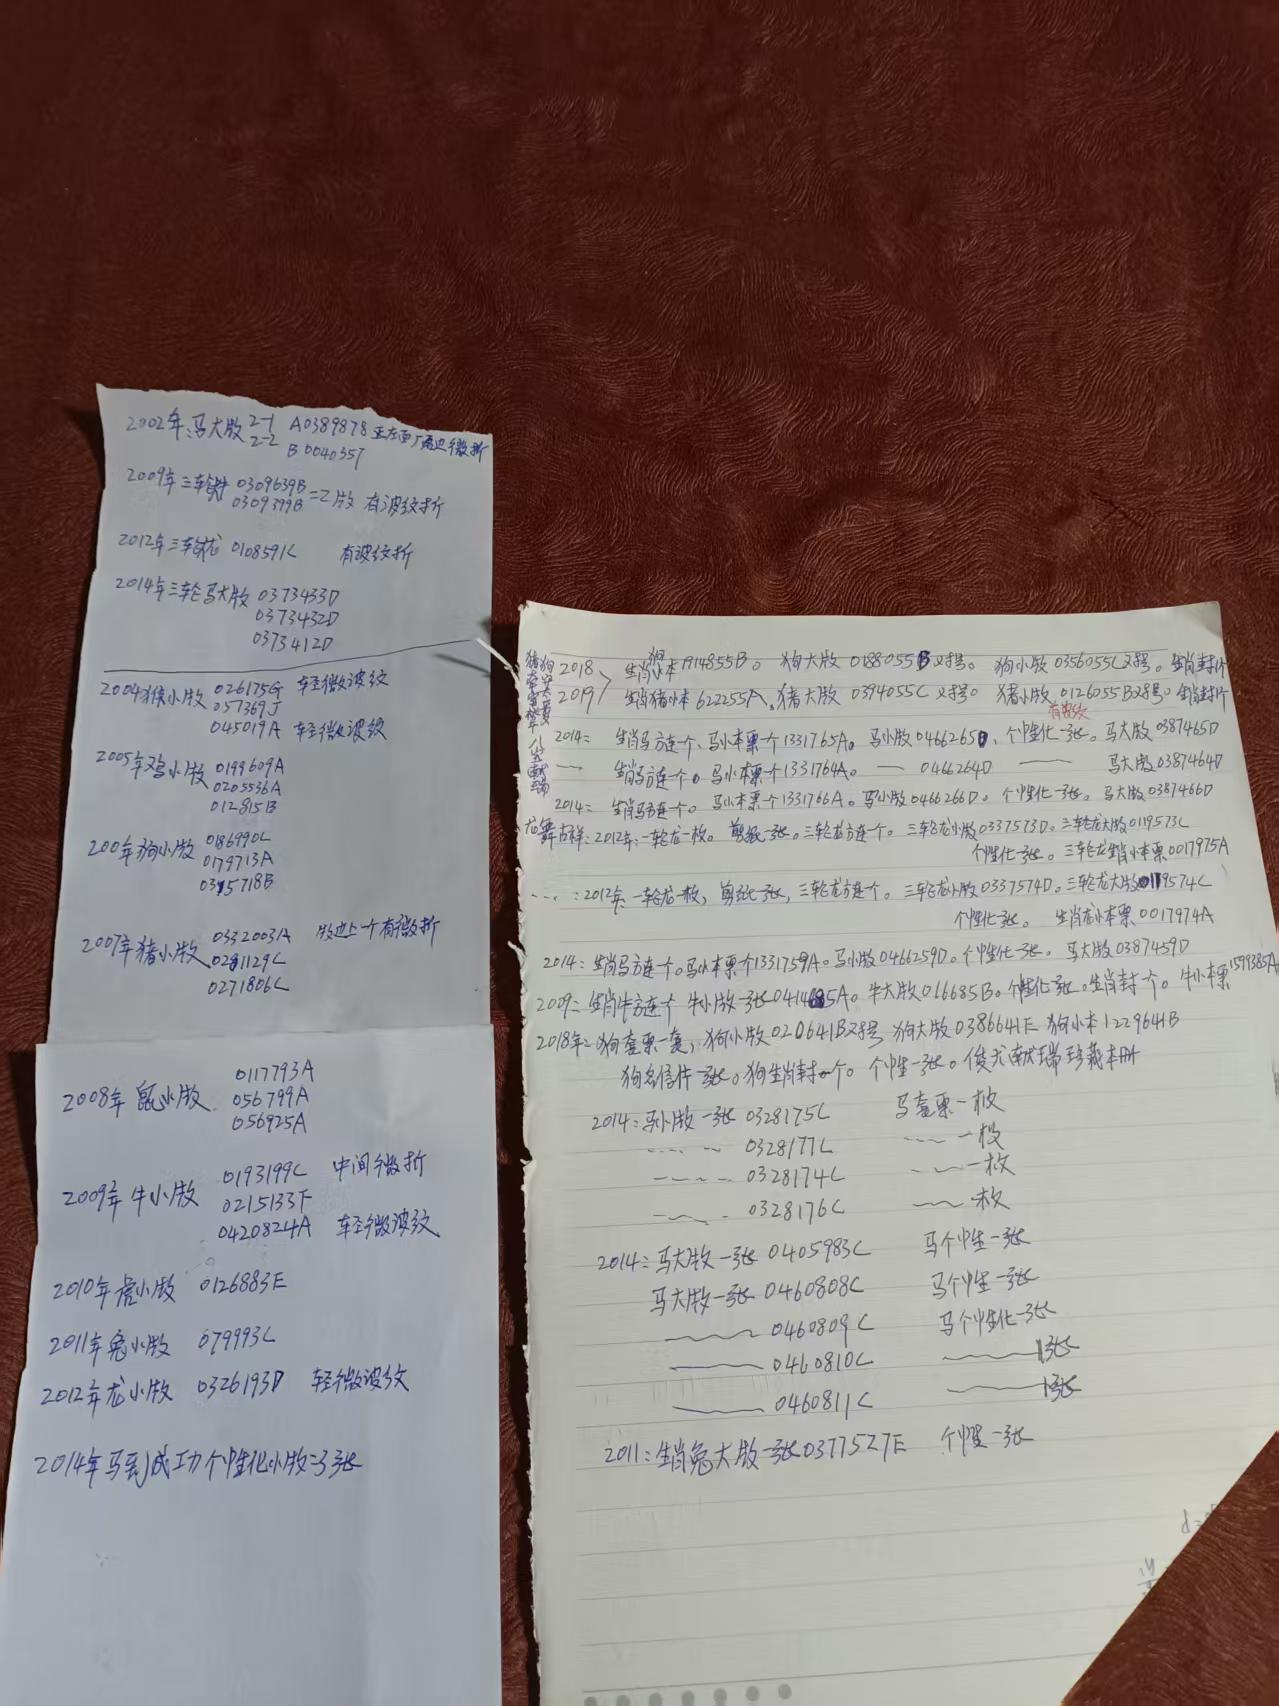 2002年:马大版 2-1 A0389878 正左面厂铭边微折
2-2 B0040357
2009年三轮牛 0309639B
0309399B =2版 有波纹折
2012年三轮龙 0108591C 有波纹折
2014年三轮马大版 0373433D
0373432D
0373412D
2004猴小版 026175G 轻微波纹
057369J
045019A 轻微波纹
2005年鸡小版 0199609A
0205536A
012815B
200年狗小版 0186990C
0179713A
0315718B
2007年猪小版 0332003A 版边上一个有微折
0281129C
0271806C
2008年鼠小版 0117793A
056799A
056925A
2009年牛小版 0193199C 中间微折
0215133F
0420824A 轻微波纹
2010年虎小版 0126883E
2011年兔小版 079993C
2012年龙小版 0326193D 轻微波纹
2014年马到成功个性化小版=3张
2018 生肖狗小本1914855B。 狗大版 0188055B对号。 狗小版 0356055C对号。生肖封1个
2019 生肖猪小本622255A。猪大版 0394055C对号。 猪小版 0126055B对号。生肖封1个
有波纹
2014: 生肖马方连一个、马小本票一个1331765A。马小版0466265D、个性化一张。马大版0387465D
生肖马方连一个。马小本票一个1331764A。— 0466264D —— 马大版0387464D
2014: 生肖马方连一个。马小本票一个1331766A。马小版0466266D。个性化一张。马大版0387466D
龙舞吉祥:2012年:一轮龙一枚。剪纸一张。三轮龙方连一个。三轮龙小版0337573D。三轮龙大版0119573C
个性化一张。三轮龙生肖小本票0017975A
....:2012年:一轮龙一枚,剪纸一张,三轮龙方连一个。三轮龙小版0337574D。三轮龙大版0119574C
个性化一张。 生肖龙小本票0017974A
2014:生肖马方连一个。马小本票一个1331759A。马小版0466259D。个性化一张。马大版0387459D
2009:生肖牛方连一个 牛小版一张0414685A。牛大版016685B。个性化一张。生肖封一个。牛小本票1599385A
2018年:狗套票一套,狗小版020641B对号 狗大版0386641E 狗小本1229641B
狗名信件一张。狗生肖封一个。个性一张。俊犬献瑞珍藏本册
2014:马小版一张 0328175C 马套票一枚
---- 0328177C ---一枚
---- 0328174C ---一枚
---- 0328176C ---一枚
2014:马大版一张 0405983C 马个性一张
马大版一张 0460808C 马个性一张
—— 0460809C 马个性化一张
—— 0460810C ——1张
—— 0460811C ——1张
2011:生肖兔大版一张0377527E 个性一张